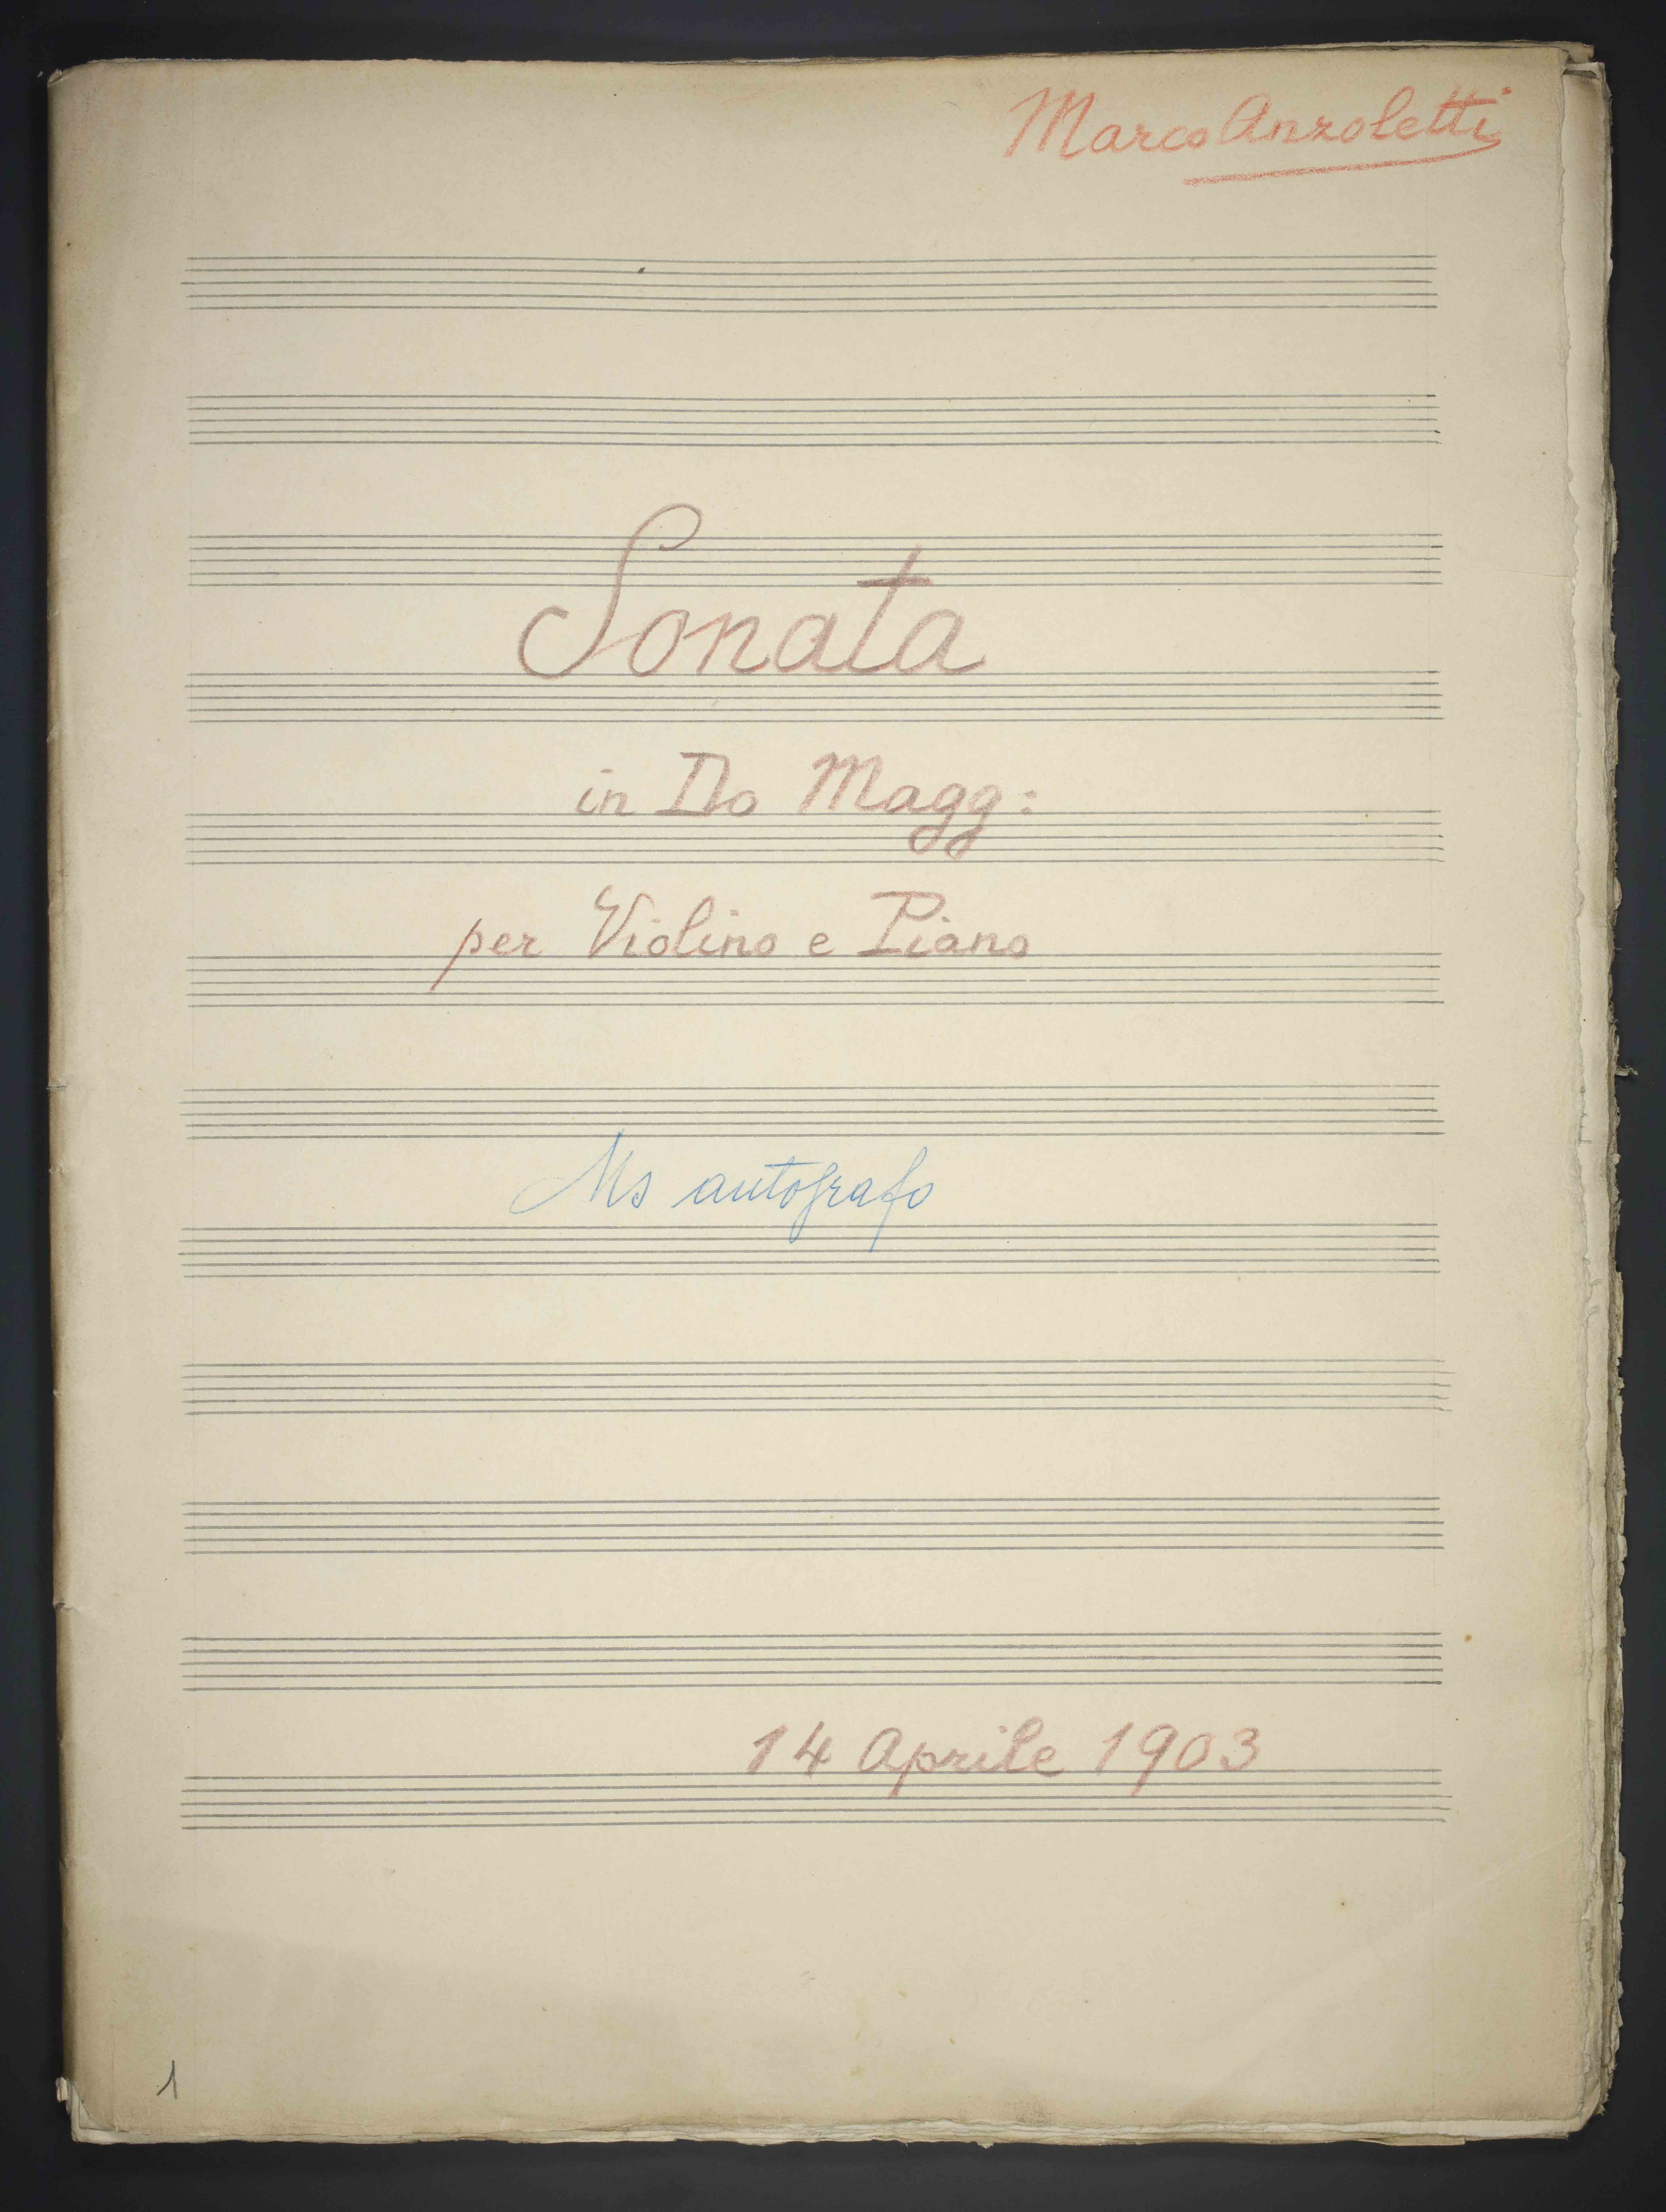 Marco Anzoletti
Sonata
in Do Magg:
per Violino e Piano
Ms autografo
14 Aprile 1903
1